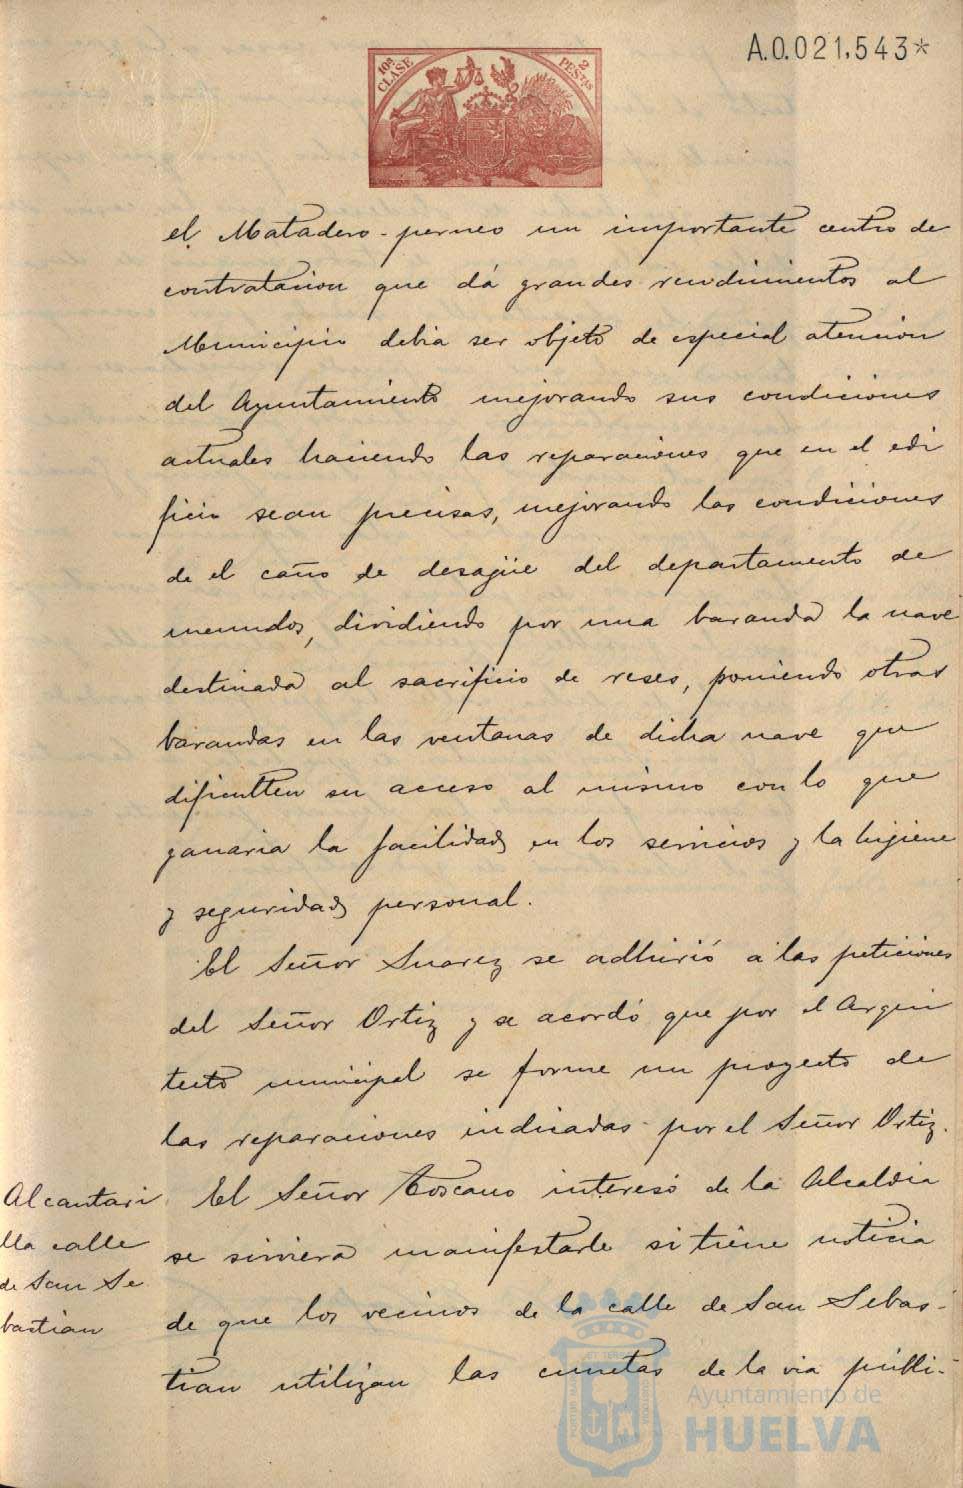 A.0.021,543*
10ª CLASE
2 PESETAS
el Matadero-perneo un importante centro de
contratación que dá grandes rendimientos al
Municipio debia ser objeto de especial atencion
del Ayuntamiento mejorando sus condiciones
actuales haciendo las reparaciones que en el edi
ficio sean precisas, mejorando las condiciones
de el caño de desagüe del departamento de
menudos, dividiendo por una baranda la nave
destinada al sacrificio de reses, poniendo otras
barandas en las ventanas de dicha nave que
dificulten su acceso al mismo con lo que
ganaria la facilidad en los servicios y la higiene
y seguridad personal.
El Señor Suarez se adhirió a las peticiones
del Señor Ortiz y se acordó que por el Arqui
tecto municipal se forme un proyecto de
las reparaciones indicadas por el Señor Ortiz.
Alcantari
lla calle
de San Se
bastian
El Señor Toscano interesó de la Alcaldia
se sirviera manifestarle si tiene noticia
de que los vecinos de la calle de San Sebas-
tian utilizan las cunetas de la via públi-
Ayuntamiento de
HUELVA